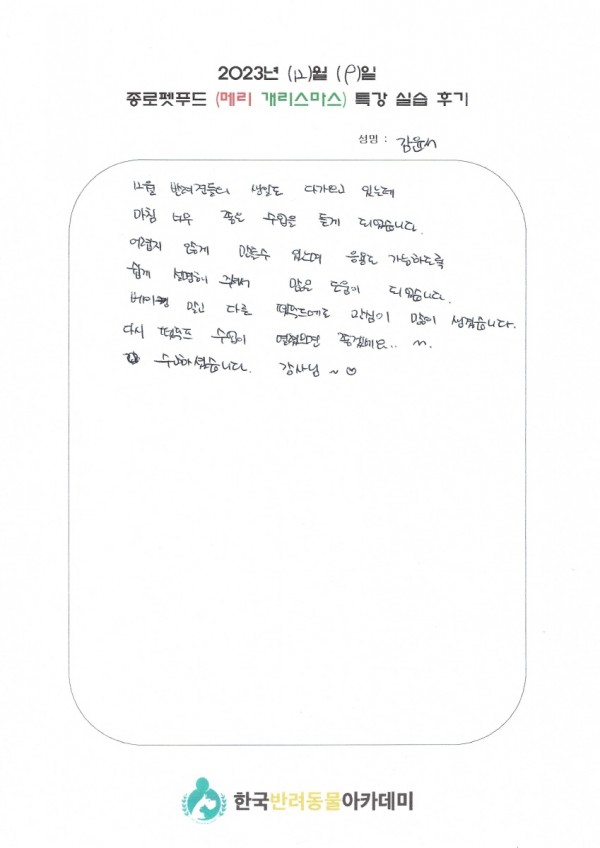 2023년 (12)월 (9)일
종로펫푸드 (메리 개리스마스) 특강 실습 후기
성명 : 김윤서
12월 반려견들의 생일도 다가오고 있는데
마침 너무 좋은 수업을 듣게 되었습니다.
어렵지 않게 만들수 있으며 응용도 가능하도록
쉽게 설명해 주셔서 많은 도움이 되었습니다.
베이킹 말고 다른 펫푸드에도 관심이 많이 생겼습니다.
다시 펫푸드 수업이 열렸으면 좋겠네요..
수고하셨습니다. 강사님 ~ ♡
한국반려동물아카데미